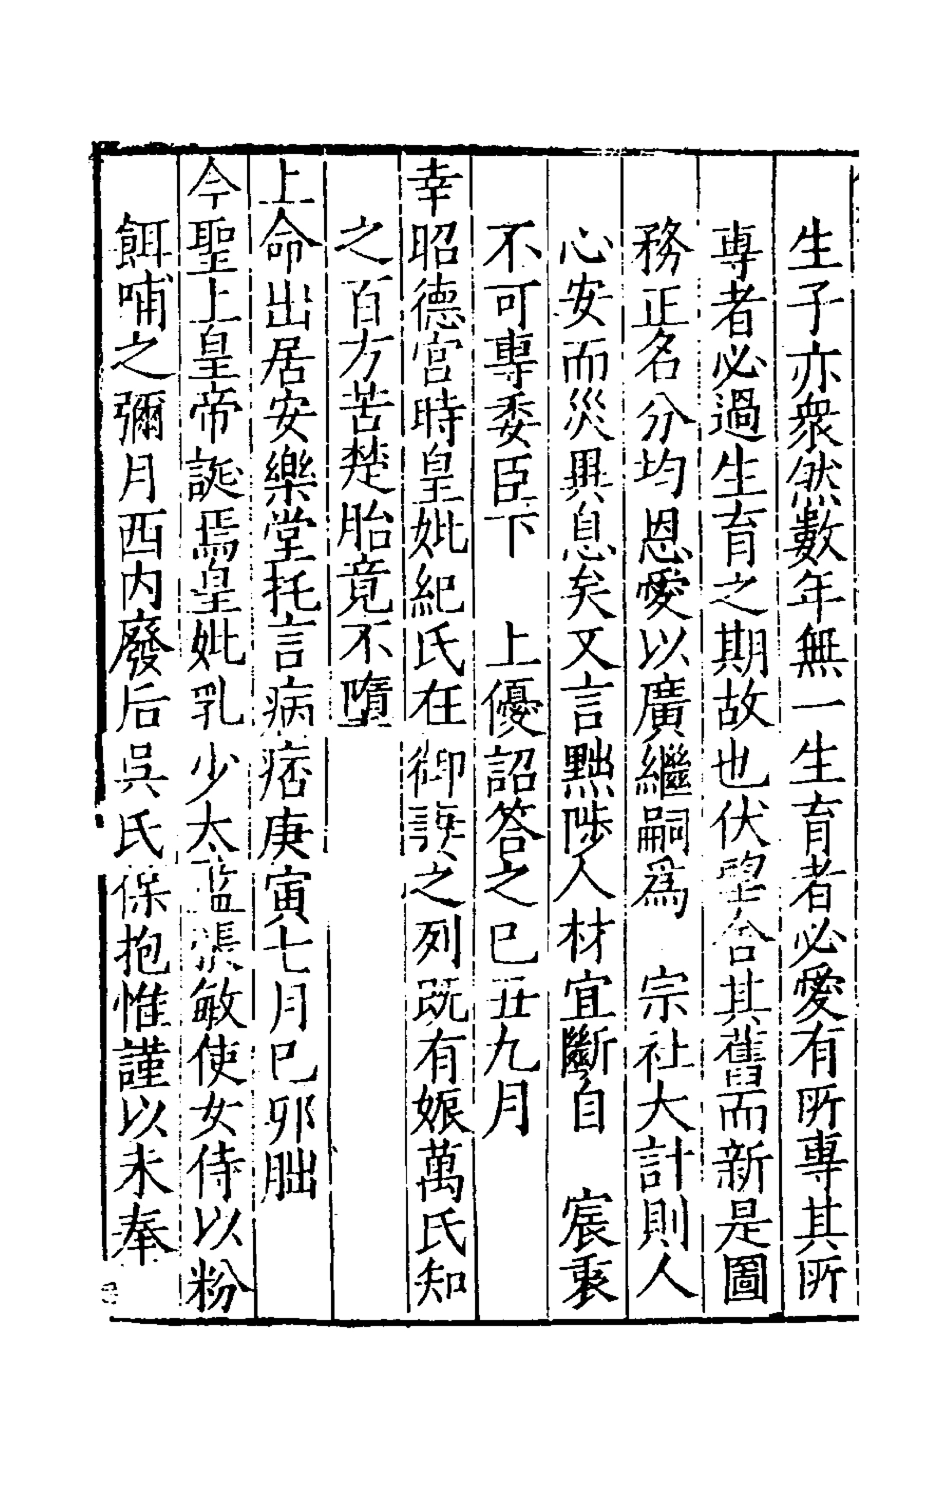 生子亦衆然數年無一生育者必愛有所專其所
専者必過生育之期故也伏望合其舊而新是圖
務正名分均恩愛以廣繼嗣爲　宗社大計則人
心安而災異息矣又言黜陟人材宜斷自　宸衷
不可專委臣下　上優詔答之巳丑九月
幸昭德宮時皇妣紀氏在御妻之列既有娠萬氏知
之百方苦楚胎竟不墮
上命出居安樂堂托言病痞庚寅七月巳卯朏
今聖上皇帝誕焉皇妣乳少太監張敏使女侍以粉
餌哺之彌月西內廢后吳氏保抱惟謹以未奉